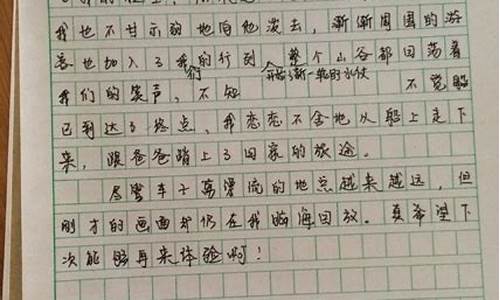 我也不甘示弱地向他泼去，渐渐周围的游
客也加入了我们的行列，整个山谷都回荡着
开始了新一轮的水仗
我们的笑声，不知 不觉船
已到达了终点，我恋恋不舍地从船上走下
来，跟爸爸踏上了回家的旅途。
尽管车子离漂流的地点越来越远，但
刚才的画面却仍在我脑海回放。真希望下
次能够再来体验啊！